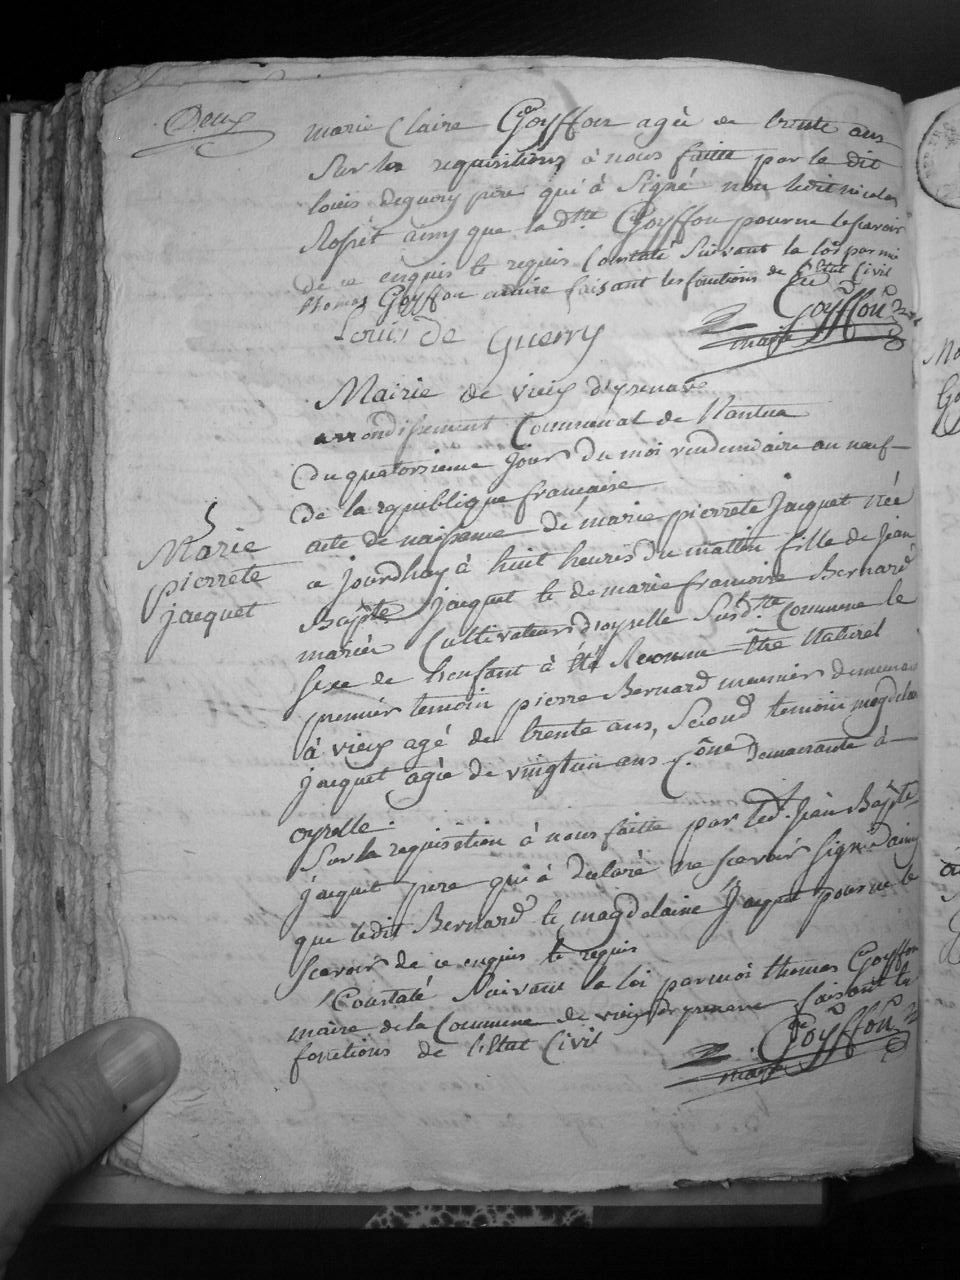 Deux
marie Claire Goÿffon agée de trente ans
Sur les requisitions à nous faitte par le dit
louis deguery pere qui à Signé non ledit nicolas
Rosset ainsy que la d.tte Goÿffon pour ne le scavoir
de ce enquis et requis Constaté Suivant la loi par moi
thomas Goÿffon maire faisant les fonctions de l'Etat Civil
Louis De Guerry
Goÿffon
maire
Mairie de vieux d'yzenave
arrondissement Communal de Nantua
Du quatorzieme Jour du moi vendemiaire an neuf
de la republique francaise
5
Marie
pierrete
jacquet
acte de naissance de marie pierrete Jacquet née
ce jourdhuy à huit heures du mattin fille de Jean
Bapte Jacquet et de marie francoise Bernard
mariés Cultivateurs d'oyselle Susd.tte Commune le
sexe de lenfant à été Reconnu être Naturel
premier temoin pierre Bernard meunier demeurant
à vieux agé de trente ans, Second temoin magdelaine
jacquet agée de vingt un ans Cône demeurante à
oyselle.
Sur la requisition à nous faitte par led.t Jean Bapte
jacquet pere qui à declaré ne scavoir signé d'ainsy
que ledit Bernard et magdelaine Jacquet pour ne le
scavoir de ce enquis et requis
Constaté Suivant la loi par moi thomas Goÿffon
maire de la Commune de vieux d'yzenave faisant les
fonctions de l'Etat Civil
Goÿffon
maire